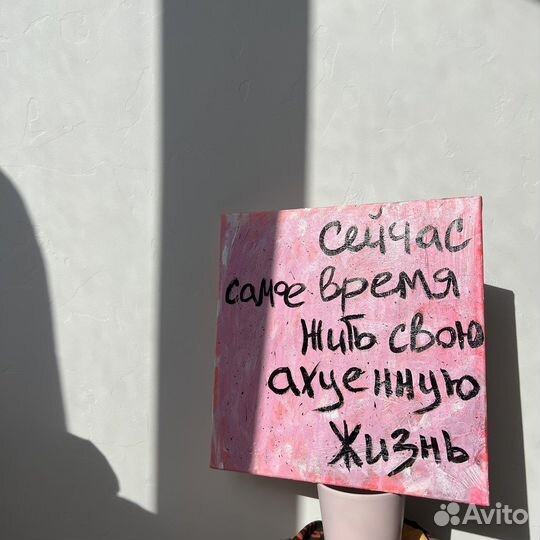 сейчас
самое время
жить свою
ахуенную
жизнь
Avito